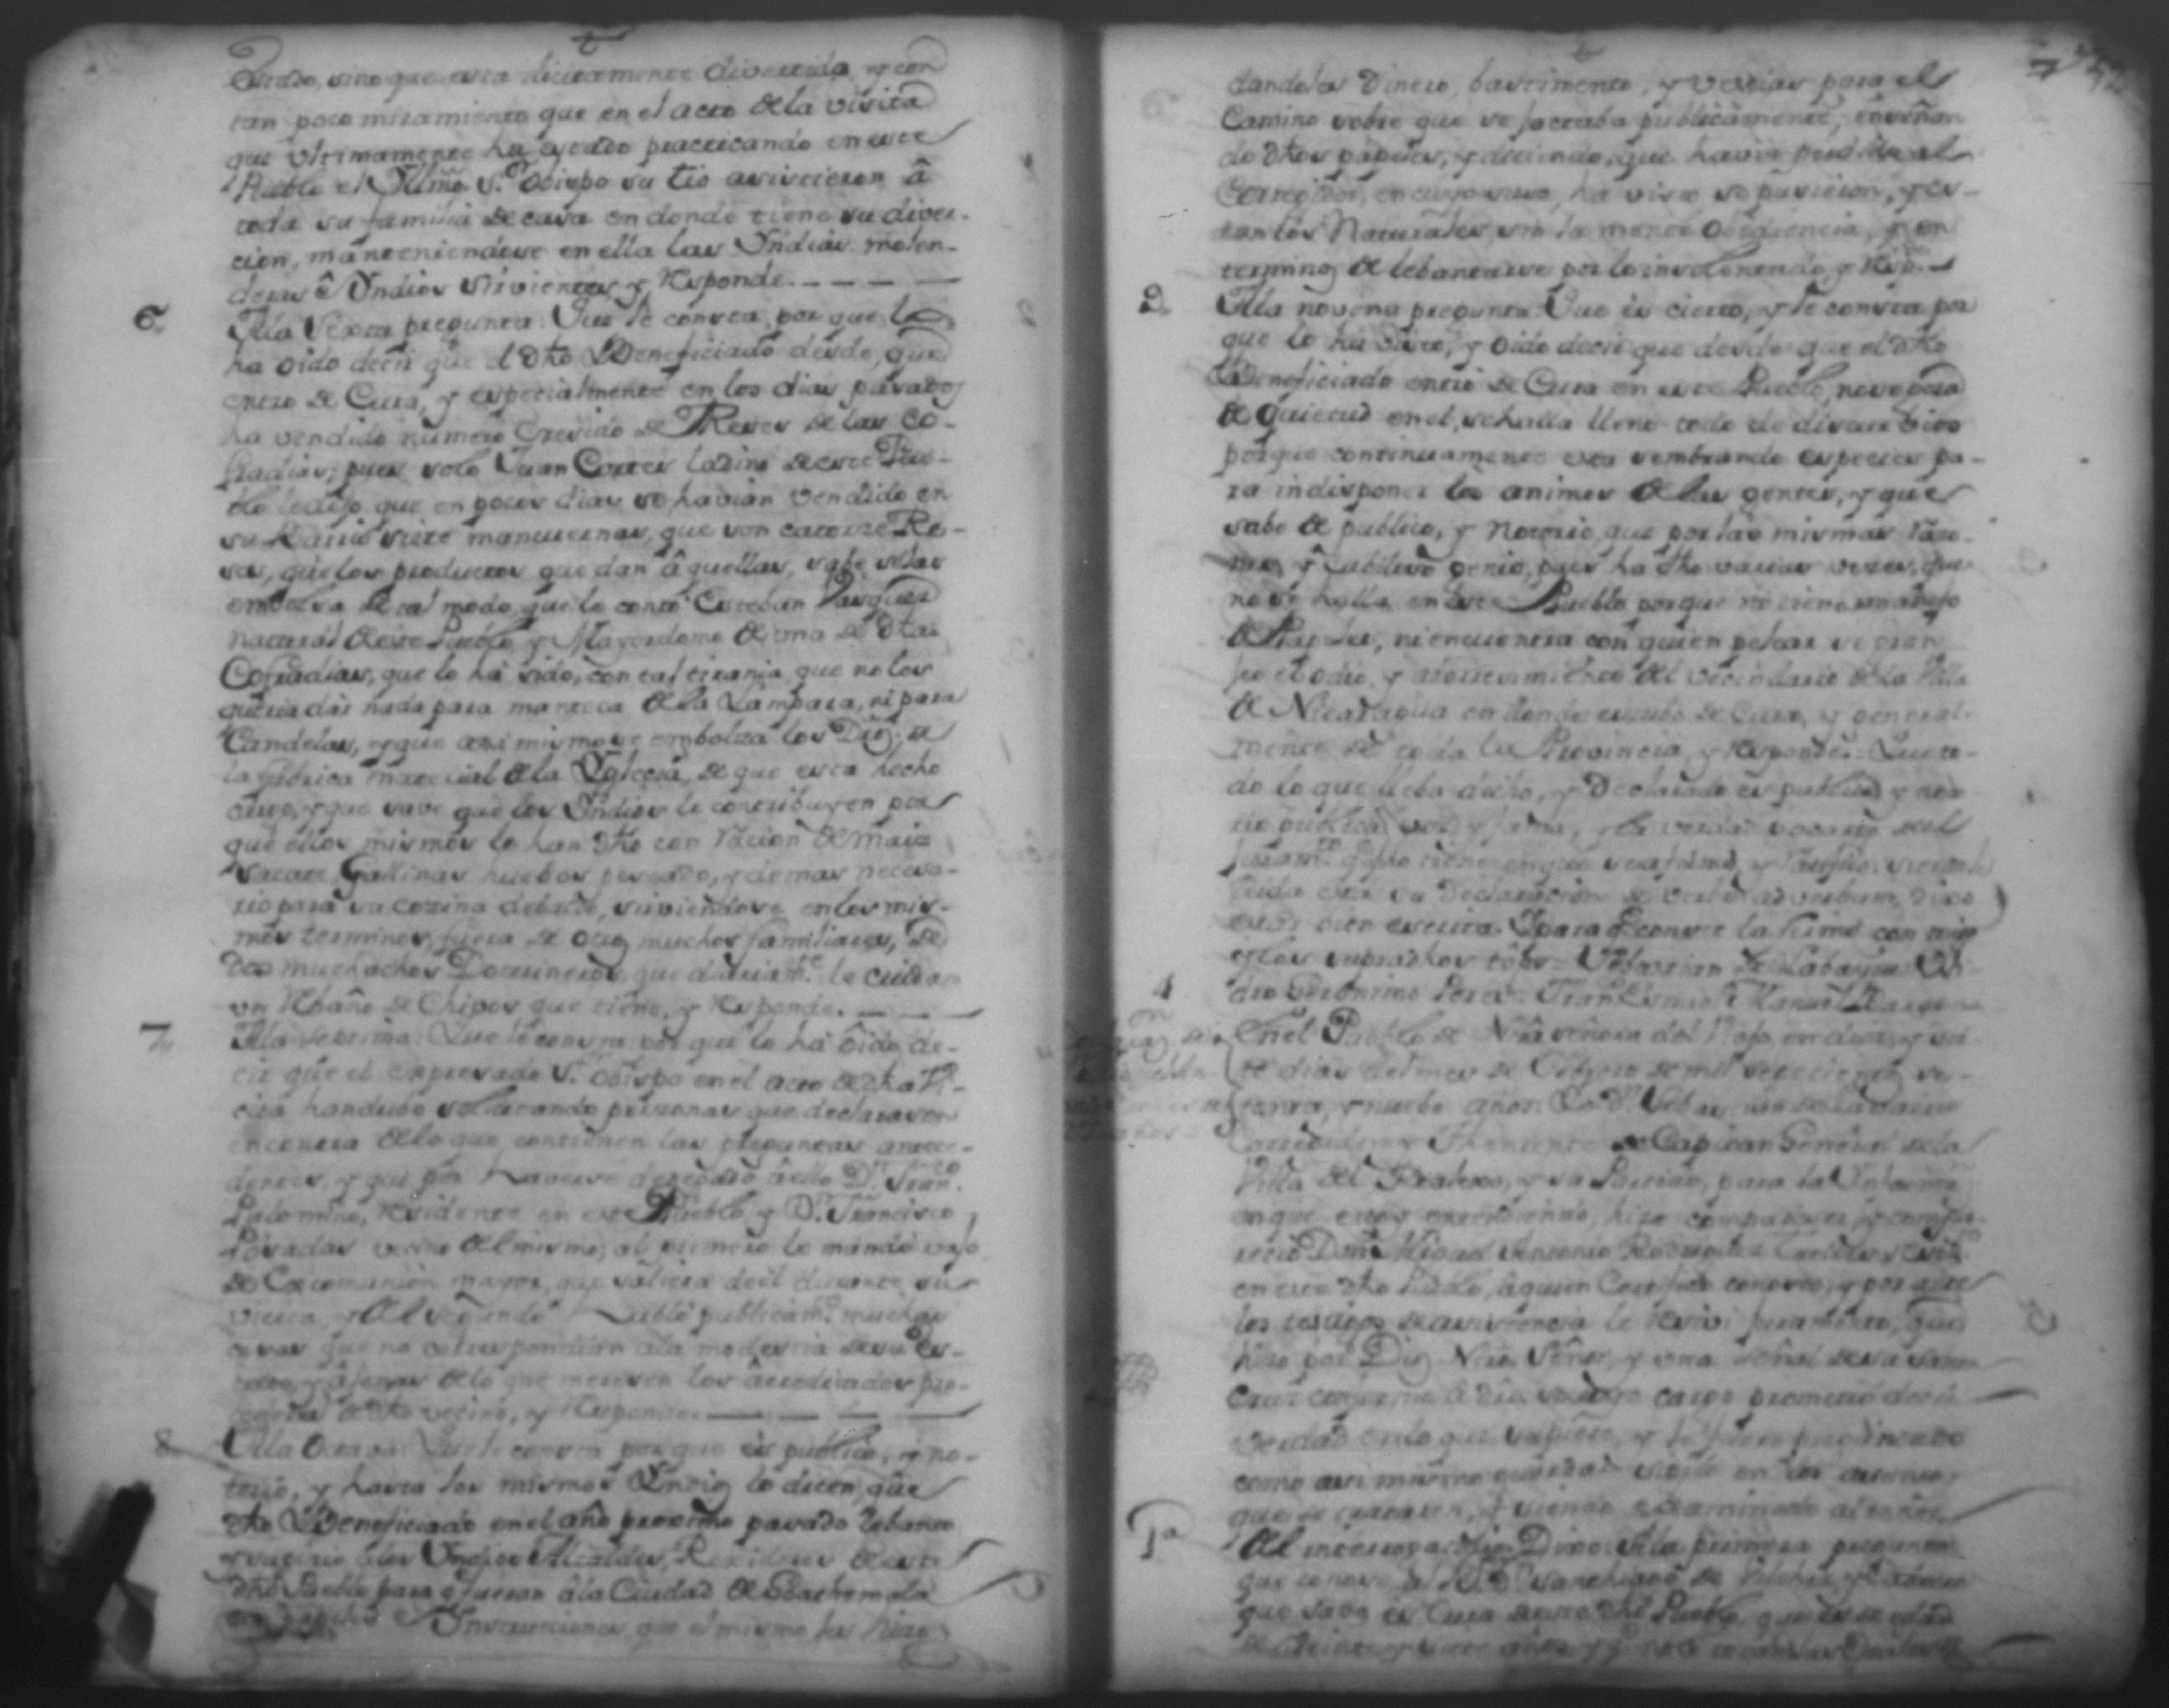 Estado, sino que esta ilicitamente divertido, y con
tan poco miramiento que en el acto de la visita
que ultimamente ha estado practicando en este
Pueblo el Yllmo. Sr. Obispo su tio asistieron â
toda su familia de casa en donde tiene su diver-
cion, manteniendose en ella las Yndias molen-
deras ê Yndios sirvientes, y responde.
6. A la sexta pregunta: Que le consta, por que lo
ha oido decir que el dho Beneficiado desde, que
entro de Cura, y especialmente en los dias pasados
ha vendido numero crecido de Reses de las Co-
fradias; pues solo Juan Cortes ladino de este Pue-
blo le dijo que en pocos dias se havian vendido en
su Barrio siete mancuernas, que son catorze Re-
ses, que los productos que dan â quellas, sabe se las
embolsa de tal modo, que le contó Esteban Vasquez
natural de este Pueblo y Mayordomo de una de dhas
Cofradias, que lo ha sido, con tal tirania que no les
queria dar nada para manteca de la Lampara, ni para
Candelas, y que asi mismo se embolza los Dros. de
la fabrica material de la Yglecia, de que esta hecho
cargo, y que save que los Yndios le contribuyen por
que ellos mismos lo han dho con racion de maiz
sacate, Gallinas huebos pescado, y demas necesa-
rio para su cozina debalde, sirviendose en los mis-
mos terminos, fuera de otros muchos familiares, de
dos muchachos Doctrineros que diariamte. le cuidan
un Rebaño de Chivos que tiene, y responde.
7. A la septima: Que le consta por que lo ha ôido de-
cir que el expresado Sr. Obispo en el acto de dha Vi-
cita handubo solicitando personas que declarasen
en contra de lo que contienen las preguntas antece-
dentes, y que por haverse negado â ello Dn. Franco.
Palomino, residente en este Pueblo, y Dn. Francisco
Posadas vecino del mismo; al primero le mandó vajo
de Excomunion mayor, que saliera de él durante su
vicita, y al segundo habló publicamte. muchas
cosas que no correspondian a la modestia de su Es-
tado, y âjenas de lo que merecen los âcreditados pro-
cederes de dho vecino, y responde.
8. A la Octava: Que le consta por que es publico, y no-
torio, y hasta los mismos Yndios lo dicen, que
dho Beneficiado en el año proximo pasado lebantó
y sugirió a los Yndios Alcaldes, Rexidores de este
dho Pueblo para q fueran â la Ciudad de Goathemala
con papeles ê Ynstrucciones, que el mismo les hizo
dandoles Dinero, bastimento, y vestias para el
Camino sobre que se jactaba publicamente, enseñan-
do dhos papeles, y diciendo, que havia perdido al
Corregidor, en cuyo caso, ha visto
tan los Naturales, sin la menor obediencia, y en
terminos de lebantarse por lo insolentado, y resp.
9. A la novena pregunta: Que es cierto, y le consta por
que lo ha visto, y oido decir que desde que el dho
Beneficiado entró de Cura en este Pueblo, no se goza
de quietud en el, se halla lleno todo de disturbios
porque continuamente esta sembrando especies pa-
ra indisponer los animos de las gentes, y que
sabe de publico, y notorio, que por las mismas razo-
nes, y cabiloso genio, pues ha dho varias vezes, que
no se halla en este Pueblo porque no tiene manejo
de Papeles, ni encuentra con quien pelear se gran-
jeó el odio, y aborrecimiento del vecindario de la Villa
de Nicaragua en donde estubo de Cura, y general-
mente de toda la Provincia, y responde. Que to-
do lo que lleba dicho, y declarado es publico y noto-
rio publica voz, y fama, y la verdad so cargo del
juramto. q fho tiene en que se afirmó, y ratificó, siendole
leida esta su Declaracion de verbo ad verbum dixo
estar bien escrita. Y para q. conste la firmó con migo
y los supradhos tôs. Sebastian de Labayru
Geronimo Perez. Manuel
4. En el Pueblo de Nrâ señora del Viejo en diez y sie-
te dias del mes de Febrero de mil setecientos se-
senta, y nuebe años. Yo Dn. Sebastian de Labayru
Corregidor y Theniente de Capitan General de la
Villa del Realexo, y su Partido, para la Ynformn.
en que estoy entendiendo, hize comparecer, y compa-
reció Don Miguel Antonio Rodriguez
en este dho Pueblo, â quien Certifico conosco, y por ante
los testigos de asistencia le recivi juramento, que
hizo por Dios Nrô. Señor, y una señal de su santa
Cruz conforme â drô. so cuyo cargo prometió decir
verdad en lo que supiere, y le fuere preguntado
como asi mismo guardar sigilo en los asuntos
que se trataren, y siendo examinado al tenor
1a. del interrogatorio Dixo: A la primera pregunta
que conose al
que save es Cura de este dho Pueblo, que es de edad
de treinta y siete años, y q. no le tocan las Generales